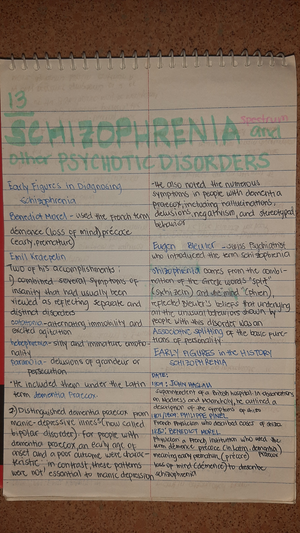 13
SCHIZOPHRENIA spectrum and
other PSYCHOTIC DISORDERS
Early Figures in Diagnosing
Schizophrenia
Benedict Morel - used the french term
démence (loss of mind) précoce
(early, premature)
Emil Kraepelin
Two of his accomplishments:
1) combined several symptoms of
insanity that had usually been
viewed as reflecting separate and
distinct disorders
- alternating immobility and
excited agitation
hebephrenia - silly and immature emotio-
nality
paranoia - delusions of grandeur or
persecution
*He included them under the Latin
term dementia Praecox
2) Distinguished dementia praecox from
manic-depressive illness (now called
bipolar disorder). For people with
dementia praecox, an early age of
onset and a poor outcome were charac-
teristic. in contrast, these patterns
were not essential to manic depression
*He also noted the numerous
symptoms in people with dementia
praecox, including hallucinations,
delusions, negativism, and stereotyped
behavior
Eugen Bleuler - Swiss Psychiatrist
who introduced the term schizophrenia
schizophrenia comes from the combi-
nation of the Greek words "split"
(skhizein) and the mind (phren),
reflected Bleuler's beliefs that underlying
all the unusual behaviors shown by
people with this disorder was an
Associative splitting of the basic func-
tions of personality
EARLY FIGURES in the HISTORY
SCHIZOPHRENIA
DATE:
1809: JOHN HASLAM
Superintendent of a British hospital. In observations
on Madness and Melancholy, he outlined a
description of the symptoms of
PHILIPPE PINEL
French physician who described cases of
BENEDICT MOREL
Physician a French institution who used the
term démence précoce (in Latin, dementia)
meaning early premature (précoce) Praecox
loss of mind (démence) to describe
schizophrenia